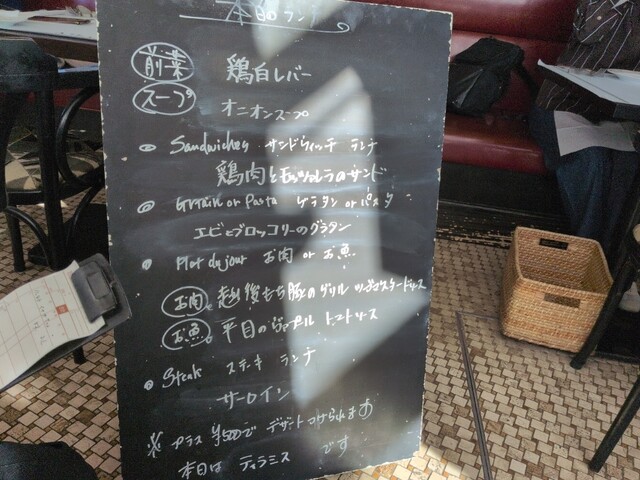 本日のランチ
前菜 鶏白レバー
スープ オニオンスープ
Sandwiches サンドウィッチ ランチ
鶏肉とモッツァレラのサンド
Gratin or Pasta グラタン or パスタ
エビとブロッコリーのグラタン
Plat du jour お肉 or お魚
お肉 越後もち豚のグリル ツブマスタードソース
お魚 平目のヴァプール トマトソース
Steak ステーキ ランチ
サーロイン
※ プラス ¥500で デザートつけられます
本日は ティラミス です